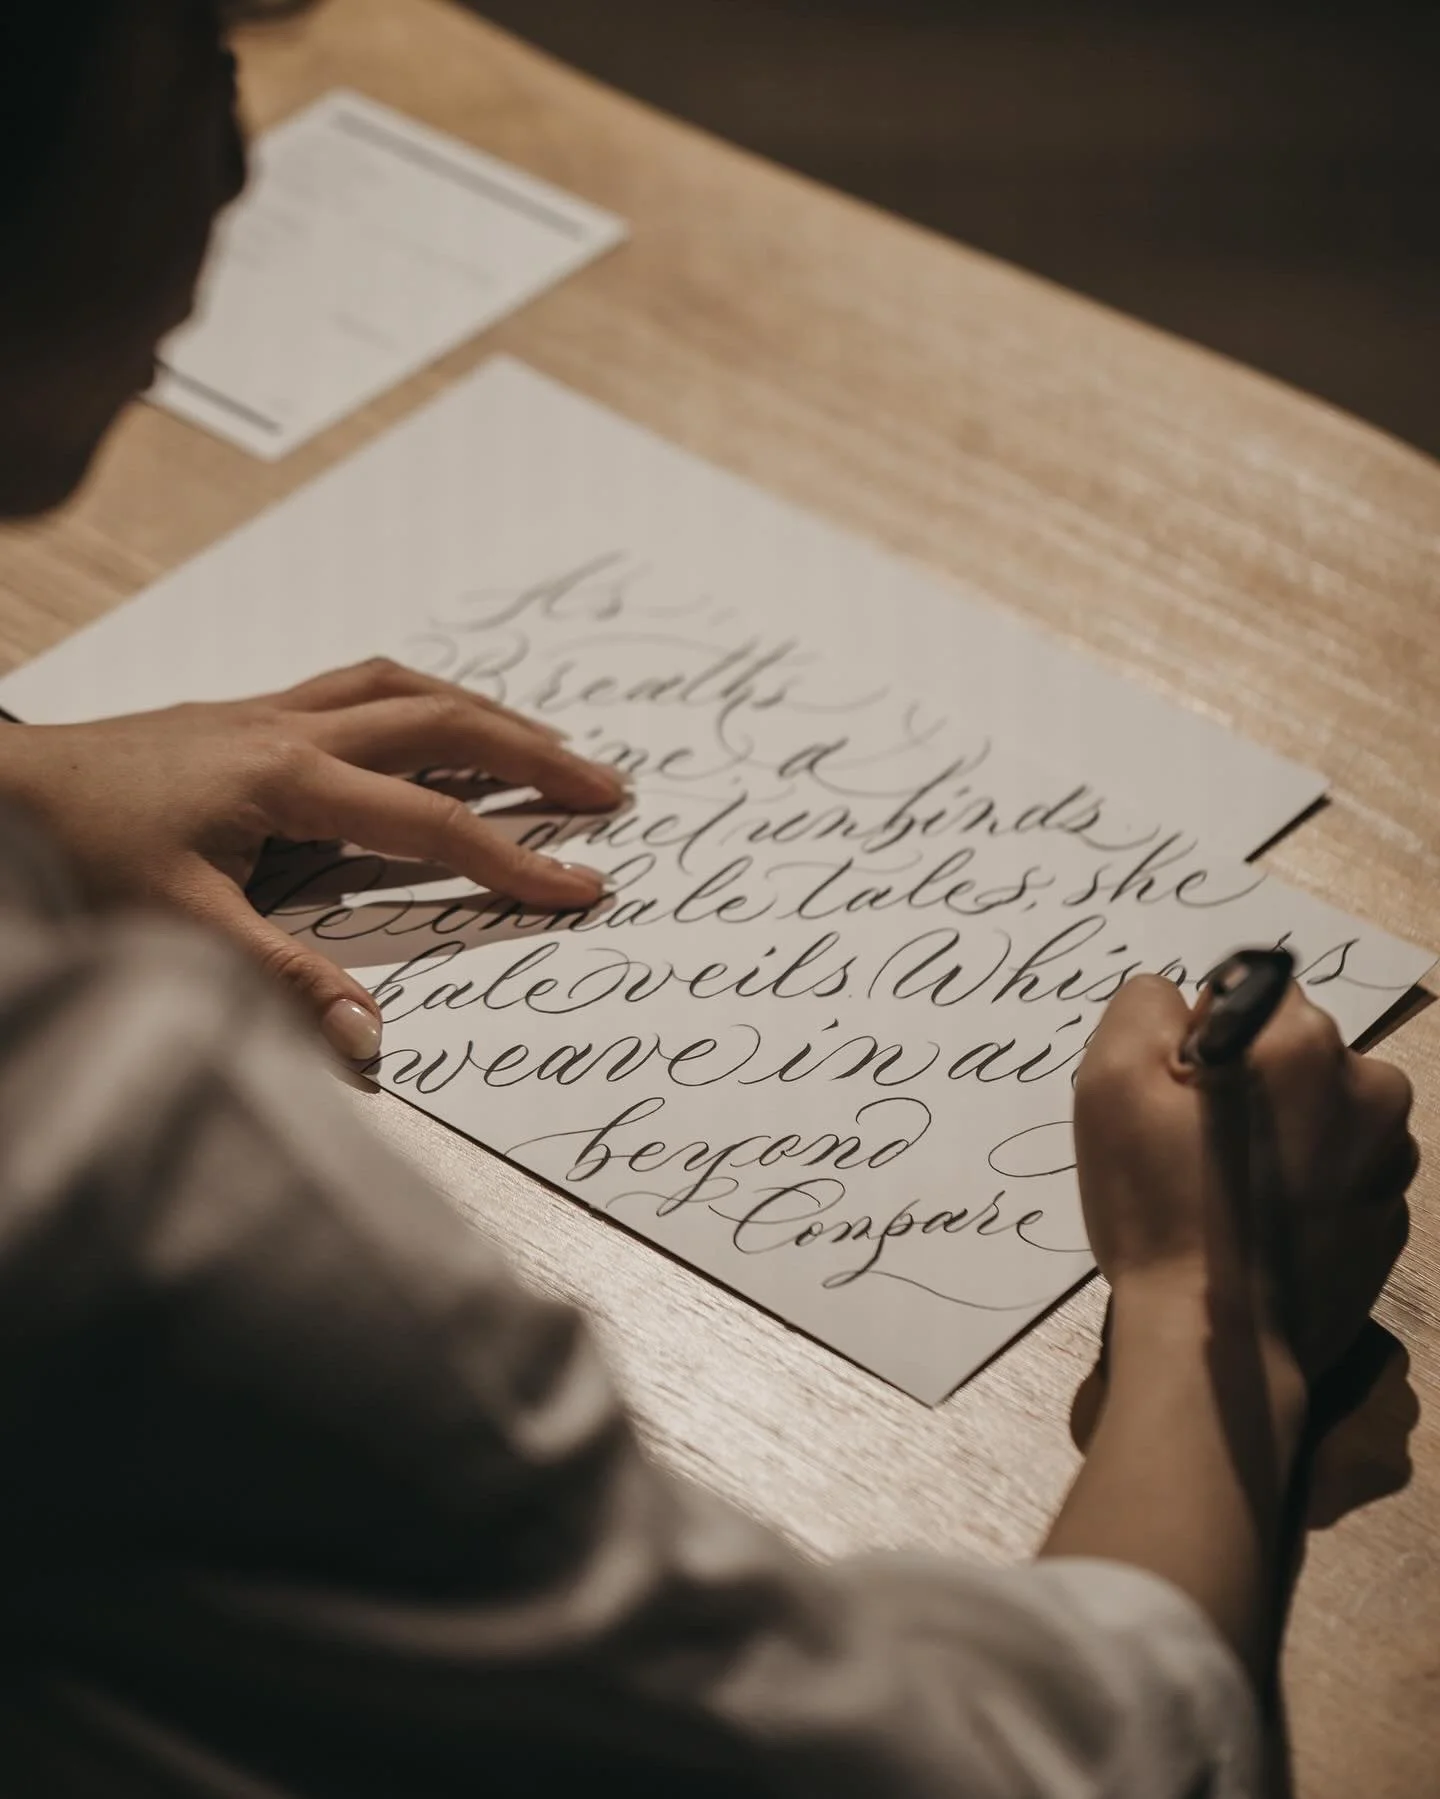 As
Breaths
a
duel unbinds
inhale tales, she
hale veils. Whispers
weave in air
beyond
Compare